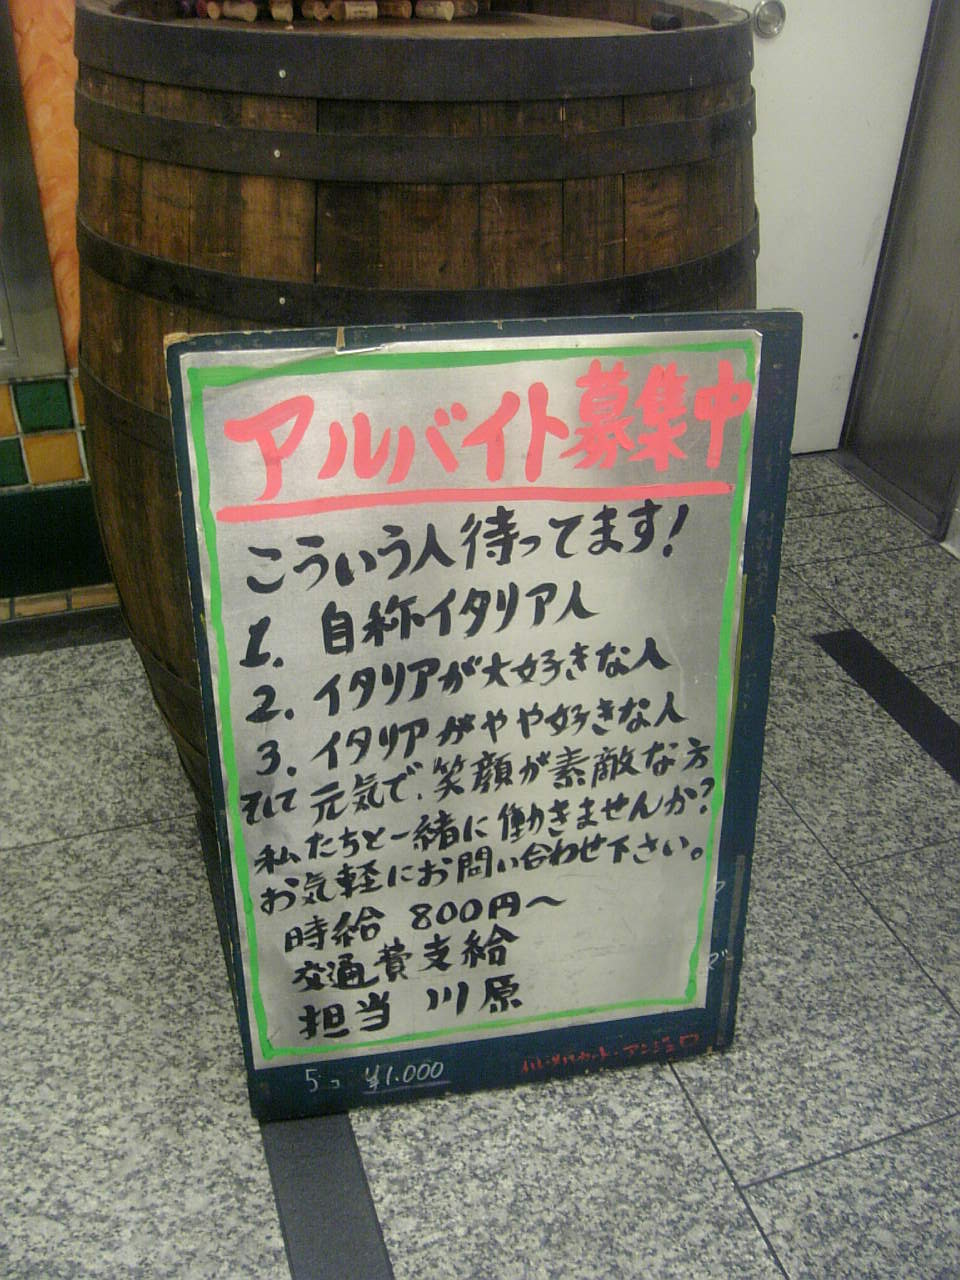 アルバイト募集中
こういう人待ってます!
1. 自称イタリア人
2. イタリアが大好きな人
3. イタリアがやや好きな人
そして 元気で、笑顔が素敵な方
私たちと一緒に働きませんか?
お気軽にお問い合わせ下さい。
時給 800円〜
交通費支給
担当 川原
5コ ¥1.000
アンジェロ